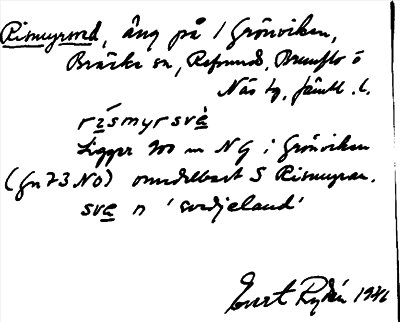 Rismyrsved, äng på 1 Grönviken,
Bräcke sn, Refsunds, Brunflo o
Näs tg, Jämtl. l.
rísmyrsvè
Ligger 700 m N G i Grönviken
(gn 73 NO) omedelbart S Rismyran.
sve n 'svedjeland'
Evert Rydén 1946